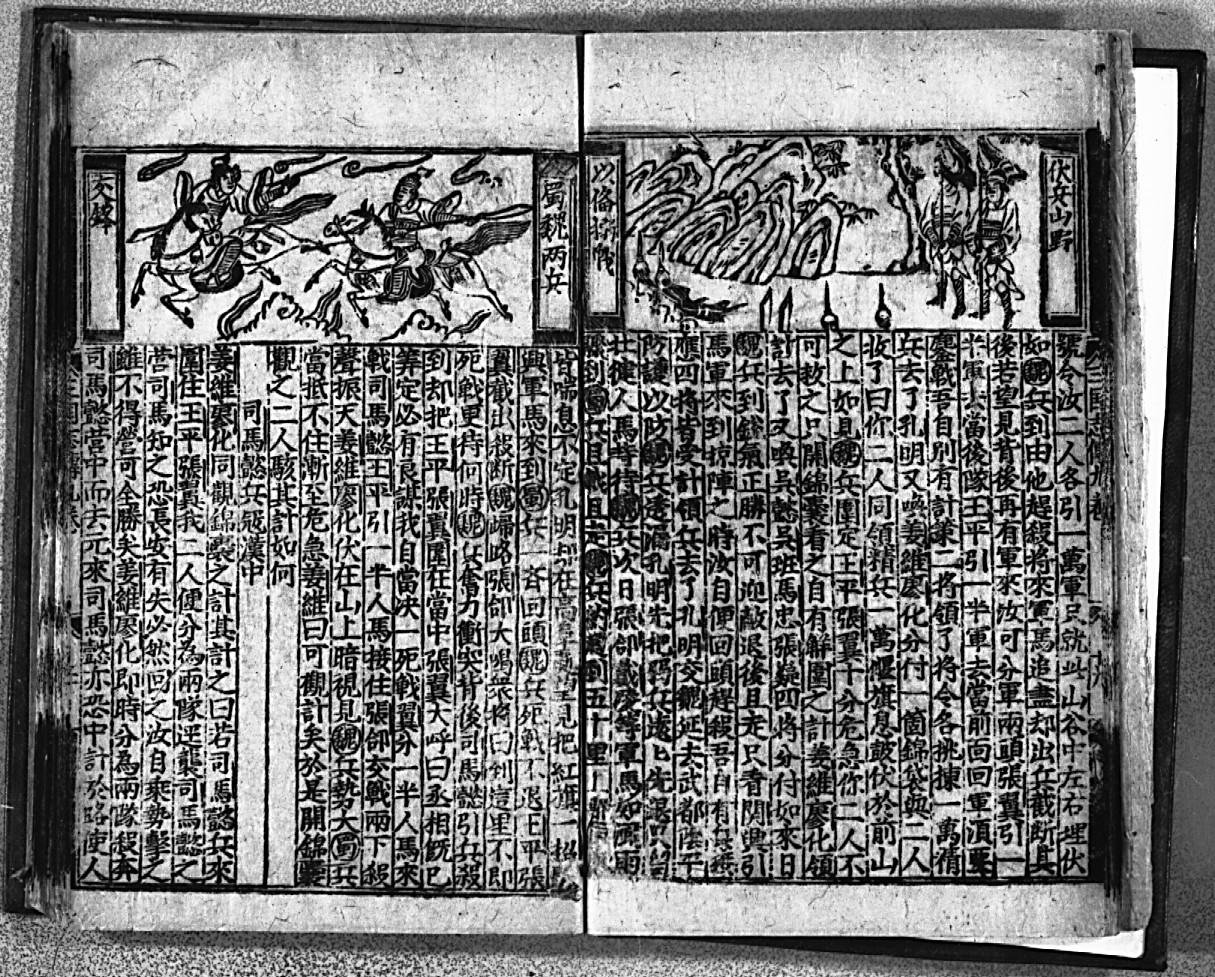 伏兵山野
以備衝戰
號令汝二人各引一萬軍只就此山谷中左右埋伏
如魏兵到由他趕殺將來軍馬追盡却出兵截斷其
後若望見背後再有軍來汝可分軍兩頭張翼引一
半軍去當後隊王平引一半軍去當前面回軍須要
鏖戰吾自別有計策二將領了將令各挑揀一萬精
兵去了孔明又喚姜維廖化分付一箇錦袋與二人
收了曰你二人同領精兵一萬偃旗息鼓伏於前山
之上如見魏兵圍定王平張翼十分危急你二人不
可救之只開錦囊看之自有解圍之計姜維廖化領
計去了又喚吳懿吳班馬忠張嶷四將分付如來日
魏兵到銳氣正勝不可迎敵退後且走只看関興引
馬軍來到掠陣之時汝自便回頭趕殺吾自有兵接
應四將皆受計領兵去了孔明交魏延去武都陰平
防護以防魏兵透漏孔明先把弱兵遠上先退只留
壯健人馬等待魏兵次日張郃戴陵等軍馬如風雨
到蜀兵且戰且走魏兵約趕到五十里
蜀魏兩兵
交鋒
皆喘息不定孔明却在高望見把紅旗一招
興軍馬來到蜀兵一齊回頭魏兵死戰不退王平張
翼截出殺斷魏歸路張郃大喝衆將曰到這里不即
死戰更待何時魏兵奮力衝突背後司馬懿引兵殺
到却把王平張翼圍在當中張翼大呼曰丞相既已
筭定必有良謀我自當决一死戰翼分一半人馬來
戰司馬懿王平引一半人馬接住張郃交戰兩下殺
聲振天姜維廖化伏在山上暗視見魏兵勢大蜀兵
當抵不住漸至危急姜維曰可觀計矣於是開錦囊
觀之二人駭其計如何
司馬懿兵寇漢中
姜維廖化同觀錦囊之計其計之曰若司馬懿兵來
圍住王平張翼我二人便分為兩隊逕襲司馬懿之
营司馬知之恐長安有失必然回之汝自乘勢擊之
雖不得營可全勝矣姜維廖化即時分為兩隊殺奔
司馬懿营中而去元來司馬懿亦恐中計於路使人